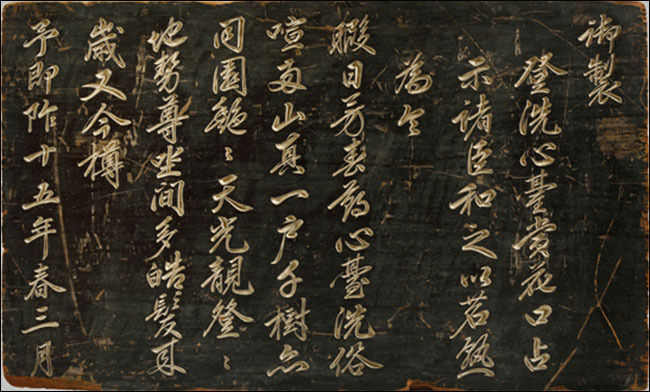 御製
登洗心臺賞花口占
示諸臣和之以茗熟
為令
暇日芳春心臺洗俗
喧兩山真一戶千樹亦
同園艶〻天光靚登〻
地勢尊坐間多皓髮來
歲又今樽
予即阼十五年春三月